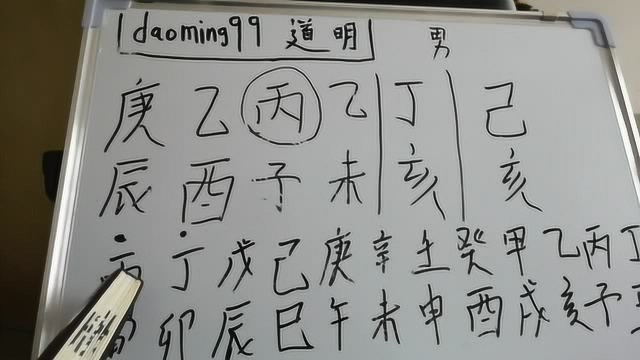 daoming99 道明 男
庚 乙 丙 乙 丁 己
辰 酉 子 未 亥 亥
丁 戊 己 庚 辛 壬 癸 甲 乙 丙 丁
卯 辰 巳 午 未 申 酉 戌 亥 子